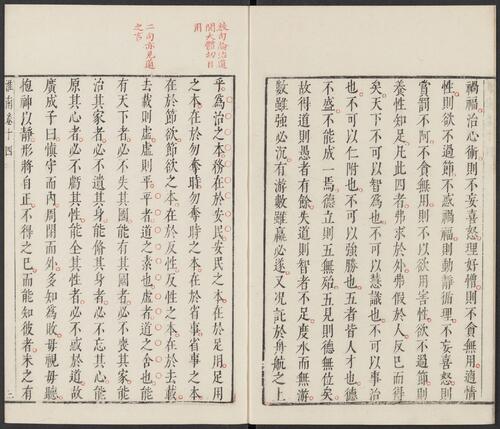 禍福治心術則不妄喜怒理好憎則不貪無用適情
性則欲不過節不惑禍福則動靜循理不妄喜怒則
賞罰不阿不貪無用則不以欲用害性欲不過節則
養性知足凡此四者弗求於外弗假於人反已而得
矣天下不可以智為也不可以慧識也不可以事治
也不可以仁附也不可以強勝也五者皆人才也德
不盛不能成一焉德立則五無殆五見則德無位矣
故得道則愚者有餘失道則智者不足度水而無游
數雖強必沉有游數雖羸必遂又况託於舟航之上
數句論治道
關大體切日
用
二句亦見道
之言
乎為治之本務在於安民安民之本在於足用足用
之本在於勿奪時勿奪時之本在於省事省事之本
在於節欲節欲之本在於反性反性之本在於去載
去載則虛虛則平平者道之素也虛者道之舍也能
有天下者必不失其國能有其國者必不喪其家能
治其家者必不遺其身能脩其身者必不忘其心能
原其心者必不虧其性能全其性者必不惑於道故
廣成子曰慎守而內周閉而外多知為敗毋視毋聽
抱神以靜形將自正不得之已而能知彼者未之有
淮南卷十四
三